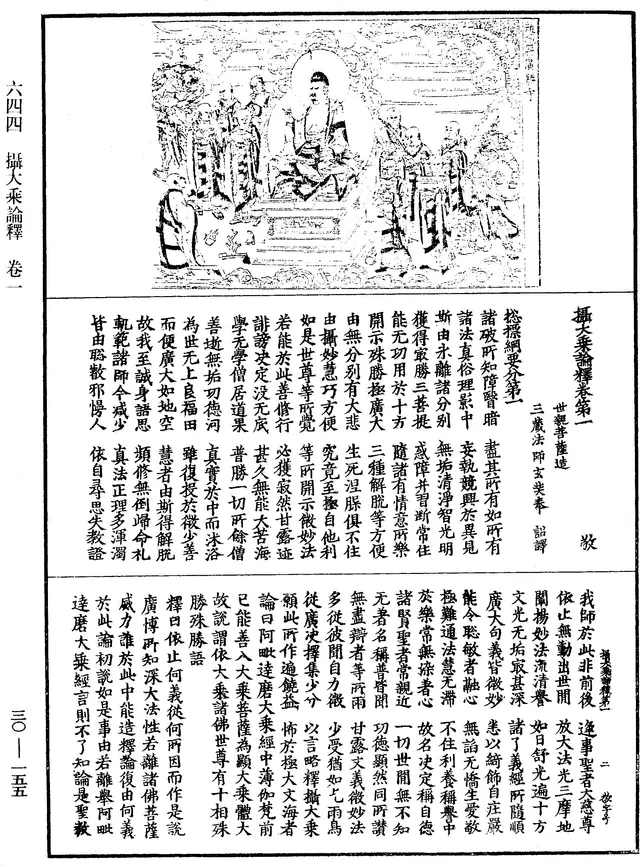 六四四 攝大乘論釋 卷一
攝大乘論釋卷第一 敬
世親菩薩造
三藏法師玄奘奉 詔譯
捴標綱要分第一
諸破所知障翳暗 盡其所有如所有
諸法真俗理影中 妄執競興於異見
斯由永離諸分別 無垢清淨智光明
獲得寂勝三菩提 惑障并習斷常住
能无功用於十方 隨諸有情意所樂
開示殊勝極廣大 三種解脫等方便
由無分別有大悲 生死涅槃俱不住
由攝妙慧巧方便 究竟至極自他利
如是世尊等所覺 等所開示微妙法
若能於此善修行 必獲寂然甘露迹
誹謗決定沒无底 甚久無能大苦海
學无學僧居道果 普勝一切所餘僧
善逝無垢功德河 真實於中而沐浴
為世无上良福田 雖復投於微少善
而便廣大如地空 慧者由斯得解脫
故我至誠身語思 頻修無倒歸命礼
軌範諸師令減少 真法正理多渾濁
皆由聡敏邪慢人 依自尋思失教證
攝大乘論釋第一 二 敬字号
我師於此非前後 逢事聖者大慈尊
依止無動出世間 放大法光三摩地
闡揚妙法流清譽 如日舒光遍十方
文光无垢寂甚深 諸了義經所隨順
廣大句義皆微妙 悉以綺飾自庄嚴
能令聡敏者融心 無諂无憍生愛敬
極難通法慧无滯 不住利養稱譽中
於樂常無染著心 故名決定稱自德
諸賢聖者常親近 一切世間無不知
无著名稱普皆聞 功德顯然同所讚
無盡辯者等所雨 甘露文義微妙法
多從彼聞自力微 少受猶如乞雨鳥
從廣決擇集少分 以言略釋攝大乘
願此所作遍饒益 怖於極大文海者
論曰阿毗達磨大乘經中薄伽梵前
已能善入大乘菩薩為顯大乘體大
故說謂依大乘諸佛世尊有十相殊
勝殊勝語
釋曰依止何義從何所因而作是說
廣博所知深大法性若離諸佛菩薩
威力誰於此中能造釋論復由何義
於此論初說如是事由若離舉阿毗
達磨大乘經言則不了知論是聖教
三〇—一五五